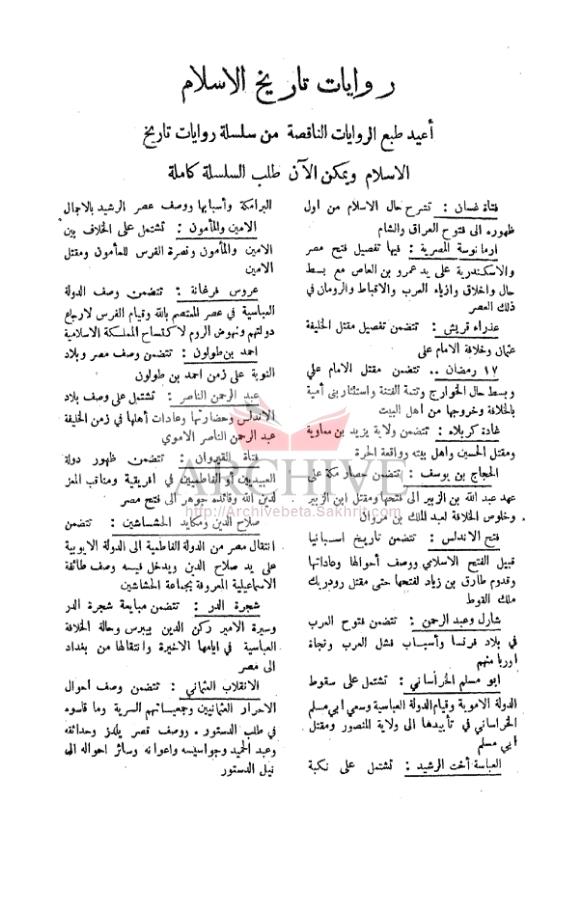 روايات تاريخ الاسلام
أعيد طبع الروايات الناقصة من سلسلة روايات تاريخ
الاسلام ويمكن الآن طلب السلسلة كاملة
فتاة غسان : تشرح حال الاسلام من اول
ظهوره الى فتوح العراق والشام
ارمانوسة المصرية : فيها تفصيل فتح مصر
والاسكندرية على يد عمرو بن العاص مع بسط
حال واخلاق وازياء العرب والاقباط والرومان في
ذلك العصر
عذراء قريش : تتضمن تفصيل مقتل الخليفة
عثمان وخلافة الامام على
١٧ رمضان .. تتضمن مقتل الامام علي
وبسط حال الخوارج وتتمة الفتنة واستئثار بني أمية
بالخلافة وخروجها من اهل البيت
غادة كربلاء : تتضمن ولاية يزيد بن معاوية
ومقتل الحسين واهل بيته وواقعة الحرة
الحجاج بن يوسف : تتضمن حصار مكة على
عهد عبد الله بن الزبير الى فتحها ومقتل ابن الزبير
وخلوص الخلافة لعبد الملك بن مروان
فتح الاندلس : تتضمن تاريخ اسبانيا
قبيل الفتح الاسلامي ووصف أحوالها وعاداتها
وقدوم طارق بن زياد لفتحها حتى مقتل رودريك
ملك القوط
شارل وعبد الرحمن : تتضمن فتوح العرب
في بلاد فرنسا وأسباب فشل العرب ونجاة
اوربا منهم
ابو مسلم الخراساني : تشتمل على سقوط
الدولة الاموية وقيام الدولة العباسية وسعي ابي مسلم
الخراساني في تأييدها الى ولاية المنصور ومقتل
أبي مسلم
العباسة أخت الرشيد : تشتمل على نكبة
البرامكة وأسبابها ووصف عصر الرشيد بالاجمال
الامين والمأمون : تشتمل على الخلاف بين
الامين والمأمون ونصرة الفرس للمأمون ومقتل
الامين
عروس فرغانة : تتضمن وصف الدولة
العباسية في عصر المعتصم بالله وقيام الفرس لارجاع
دولتهم ونهوض الروم لاكتساح المملكة الاسلامية
احمد بن طولون : تتضمن وصف مصر وبلاد
النوبة على زمن احمد بن طولون
عبد الرحمن الناصر : تشتمل على وصف بلاد
الاندلس وحضارتها وعادات أهلها في زمن الخليفة
عبد الرحمن الناصر الاموي
فتاة القيروان : تتضمن ظهور دولة
العبيديين أو الفاطميين في افريقية ومناقب المعز
لدين الله وقائده جوهر الى فتح مصر
صلاح الدين ومكايد الحشاشين : تتضمن
انتقال مصر من الدولة الفاطمية الى الدولة الايوبية
على يد صلاح الدين ويدخل فيه وصف طائفة
الاسماعيلية المعروفة بجماعة الحشاشين
شجرة الدر : تتضمن مبايعة شجرة الدر
وسيرة الامير ركن الدين بيبرس وحالة الخلافة
العباسية في ايامها الاخيرة وانتقالها من بغداد
الى مصر
الانقلاب العثماني : تتضمن وصف أحوال
الاحرار العثمانيين وجمعياتهم السرية وما قاسوه
في طلب الدستور . ووصف قصر يلدز وحدائقه
وعبد الحميد وجواسيسه واعوانه وسائر احواله الى
نيل الدستور
ARCHIVE
http://Archivebeta.Sakhrit.com